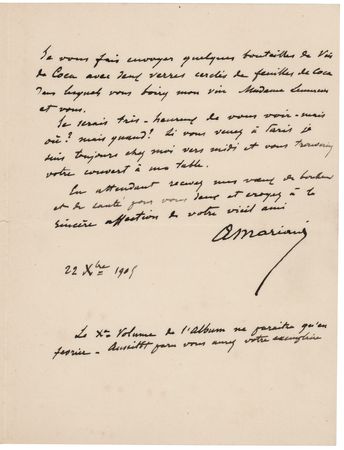 Je vous fais envoyer quelques bouteilles de Vin
de Coca avec deux verres cerclés de feuilles de Coca
dans lesquels vous boirez mon vin Madame
et vous.
Je serais très-heureux de vous voir-mais
où? mais quand? Si vous venez à Paris je
suis toujours chez moi vers midi et vous trouverez
votre couvert à ma table.
En attendant recevez mes vœux de bonheur
et de santé pour vous deux et croyez à la
sincère affection de votre vieil ami
A Mariani
22 Xbre 1905
Le Xe Volume de l'album ne paraitra qu'en
fevrier - Aussitôt paru vous aurez votre exemplaire